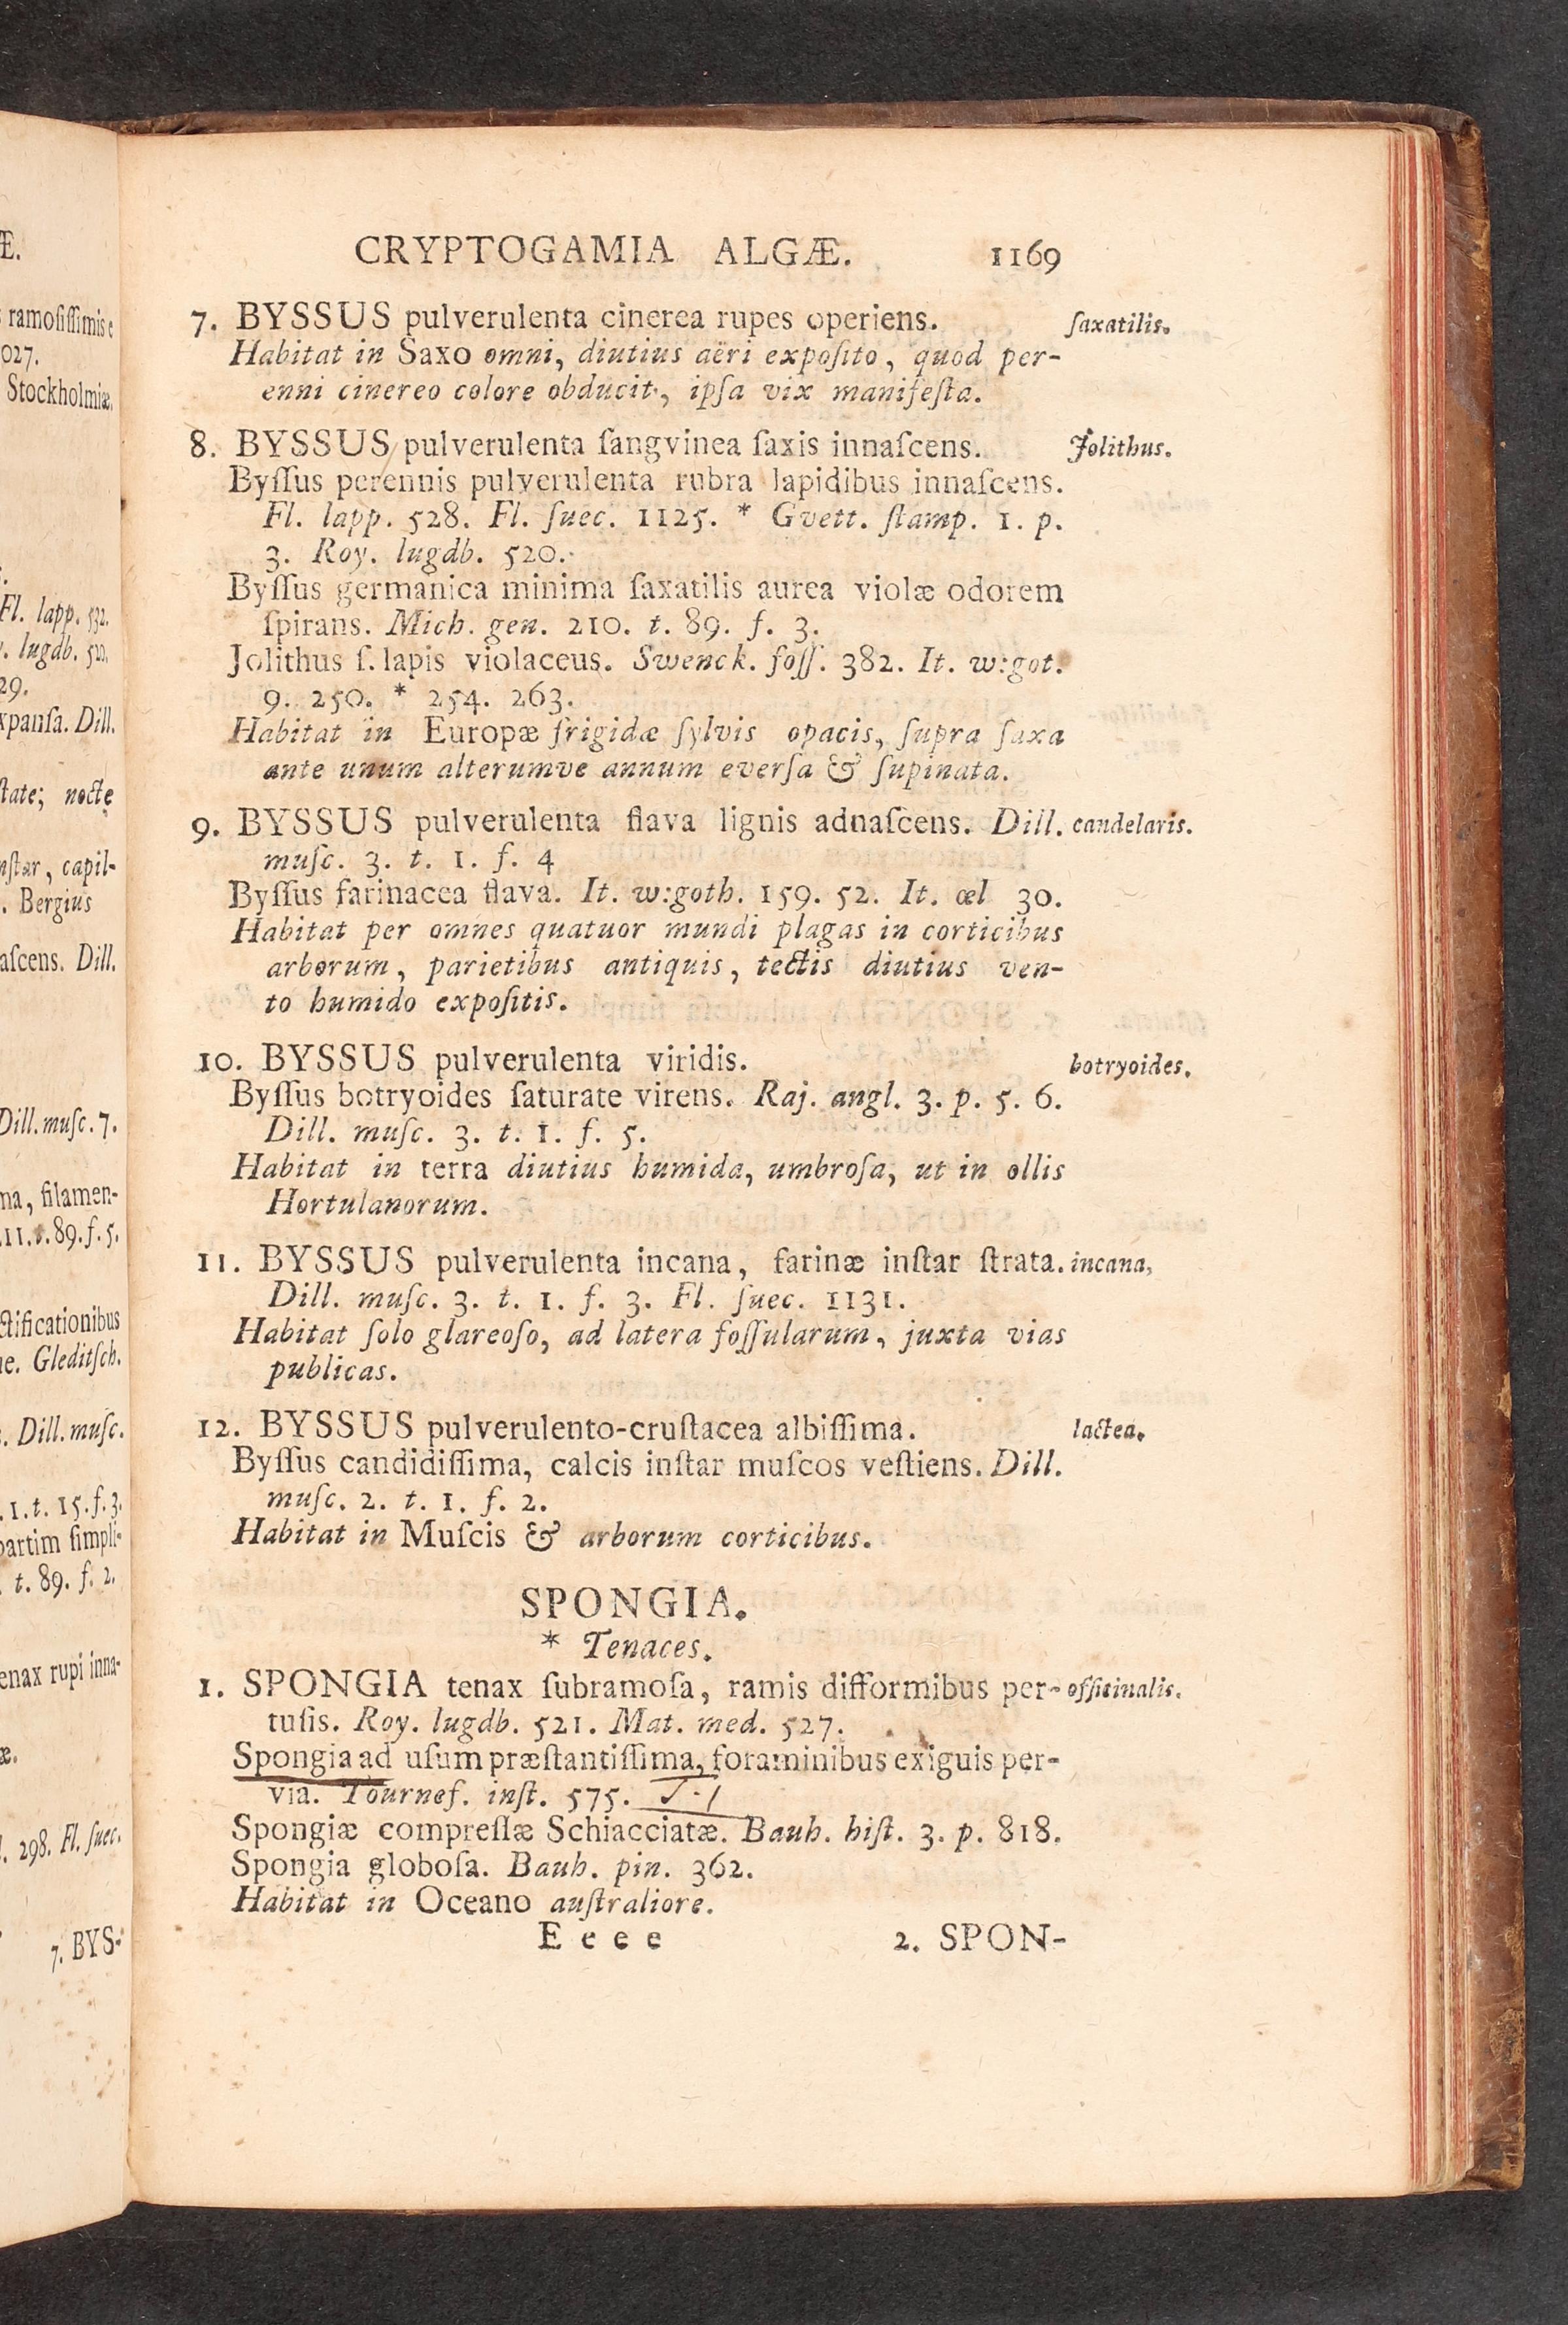 Æ.
ramoſiſſimis e
027.
Stockholmiæ.
Fl. lapp. 532.
lugdb. 520.
29.
xpanſa. Dill.
ſtate; nocte
nſtar, capil-
. Bergius
aſcens. Dill.
Dill. muſc. 7.
na, filamen-
11. t. 89. f. 5.
ctificationibus
ne. Gleditſch.
. Dill. muſc.
. 1. t. 15. f. 3.
partim ſimpli-
t. 89. f. 2.
enax rupi inna-
æ.
. 298. Fl. ſuec.
7. BYS-
CRYPTOGAMIA ALGÆ. 1169
7. BYSSUS pulverulenta cinerea rupes operiens. ſaxatilis.
Habitat in Saxo omni, diutius aëri expoſito, quod per-
enni cinereo colore obducit, ipſa vix manifeſta.
8. BYSSUS pulverulenta ſangvinea ſaxis innaſcens. Jolithus.
Byſſus perennis pulverulenta rubra lapidibus innaſcens.
Fl. lapp. 528. Fl. ſuec. 1125. * Gvett. ſtamp. 1. p.
3. Roy. lugdb. 520.
Byſſus germanica minima ſaxatilis aurea violæ odorem
ſpirans. Mich. gen. 210. t. 89. f. 3.
Jolithus ſ. lapis violaceus. Swenck. foſſ. 382. It. w:got.
9. 250. * 254. 263.
Habitat in Europæ frigidæ ſylvis opacis, ſupra ſaxa
ante unum alterumve annum everſa & ſupinata.
9. BYSSUS pulverulenta flava lignis adnaſcens. Dill. candelaris.
muſc. 3. t. 1. f. 4
Byſſus farinacea flava. It. w:goth. 159. 52. It. œl 30.
Habitat per omnes quatuor mundi plagas in corticibus
arborum, parietibus antiquis, tectis diutius ven-
to humido expoſitis.
10. BYSSUS pulverulenta viridis. botryoides.
Byſſus botryoides ſaturate virens. Raj. angl. 3. p. 5. 6.
Dill. muſc. 3. t. 1. f. 5.
Habitat in terra diutius humida, umbroſa, ut in ollis
Hortulanorum.
11. BYSSUS pulverulenta incana, farinæ inſtar ſtrata. incana,
Dill. muſc. 3. t. 1. f. 3. Fl. ſuec. 1131.
Habitat ſolo glareoſo, ad latera foſſularum, juxta vias
publicas.
12. BYSSUS pulverulento-cruſtacea albiſſima. lactea.
Byſſus candidiſſima, calcis inſtar muſcos veſtiens. Dill.
muſc. 2. t. 1. f. 2.
Habitat in Muſcis & arborum corticibus.
SPONGIA.
* Tenaces.
1. SPONGIA tenax ſubramoſa, ramis difformibus per- officinalis.
tuſis. Roy. lugdb. 521. Mat. med. 527.
Spongia ad uſum præſtantiſſima, foraminibus exiguis per-
via. Tournef. inſt. 575.
Spongiæ compreſſæ Schiacciatæ. Bauh. hiſt. 3. p. 818.
Spongia globoſa. Bauh. pin. 362.
Habitat in Oceano auſtraliore.
E e e e 2. SPON-